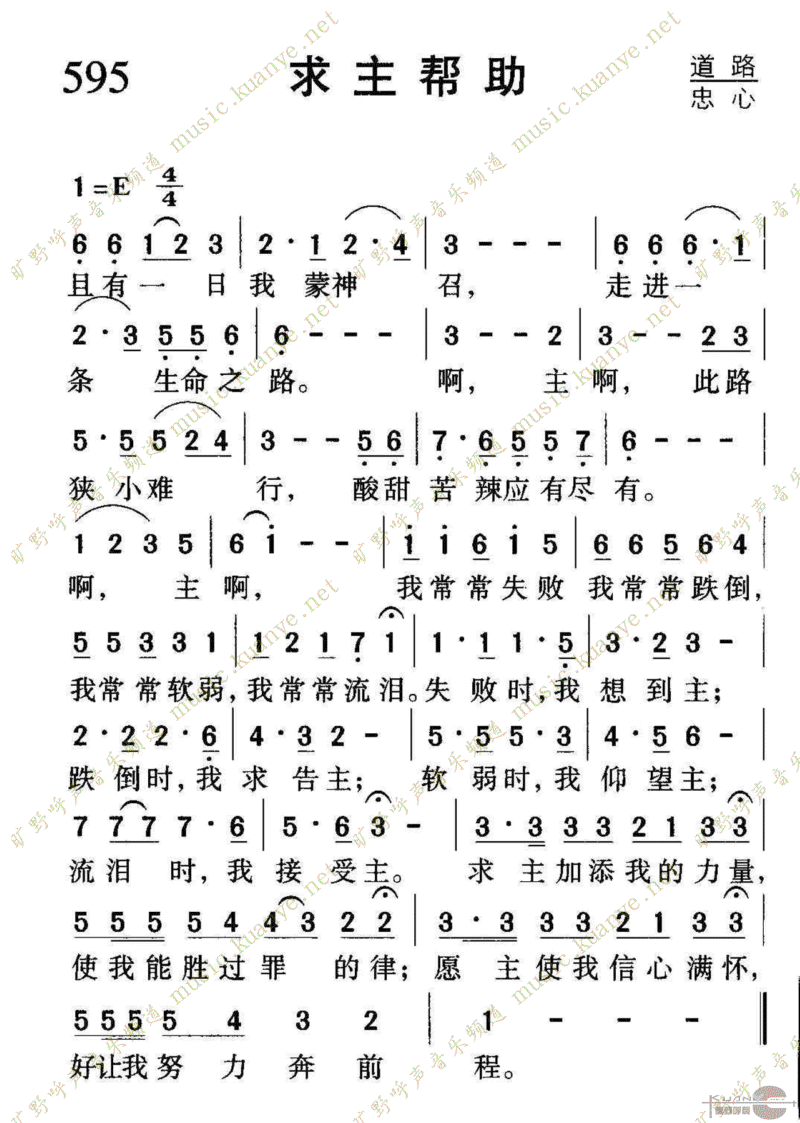 595 求主帮助 道路
忠心
1=E 4/4
6 6 1 2 3 | 2 · 1 2 · 4 | 3 - - - | 6 6 6 · 1 |
且有一 日我 蒙神 召， 走进一
2 · 3 5 5 6 | 6 - - - | 3 - - 2 | 3 - - 2 3 |
条 生命之路。 啊， 主啊， 此路
5 · 5 5 2 4 | 3 - - 5 6 | 7 · 6 5 5 7 | 6 - - - |
狭 小难 行， 酸甜苦 辣应有尽有。
1 2 3 5 | 6 i - - | i i 6 i 5 | 6 6 5 6 4 |
啊， 主啊， 我常常失败 我常常跌倒，
5 5 3 3 1 | 1 2 1 7 1 | 1 · 1 1 · 5 | 3 · 2 3 - |
我常常软弱，我常常流泪。失 败时，我 想到主；
2 · 2 2 · 6 | 4 · 3 2 - | 5 · 5 5 · 3 | 4 · 5 6 - |
跌 倒时，我求 告主； 软 弱时，我仰 望主；
7 7 7 7 · 6 | 5 · 6 3 - | 3 · 3 3 3 2 1 3 3 |
流泪 时，我接 受主。 求 主加添我的力量，
5 5 5 5 4 4 3 2 2 | 3 · 3 3 3 2 1 3 3 |
使我能胜过罪 的律；愿 主使我信心满怀，
5 5 5 5 4 3 2 | 1 - - - ‖
好让我努 力 奔 前 程。
旷野呼声音乐频道 music.kuanye.net